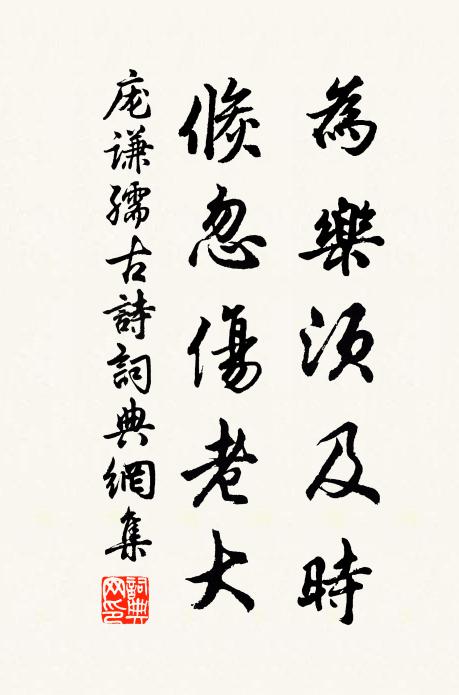 為樂須及時
倏忽傷老大
庞谦孺古詩詞典網集
詞典
网印